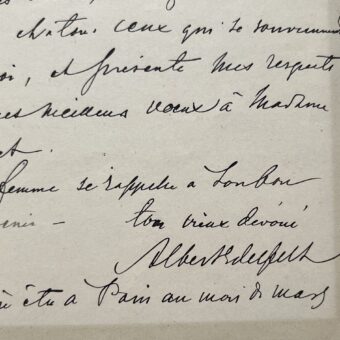 à tous ceux qui se souviennent
oi, et présente mes respects
es meilleurs voeux à Madame
et.
femme se rappelle à ton bon
enir — ton vieux dévoué
Albert Edelfelt
été à Paris au mois de mars